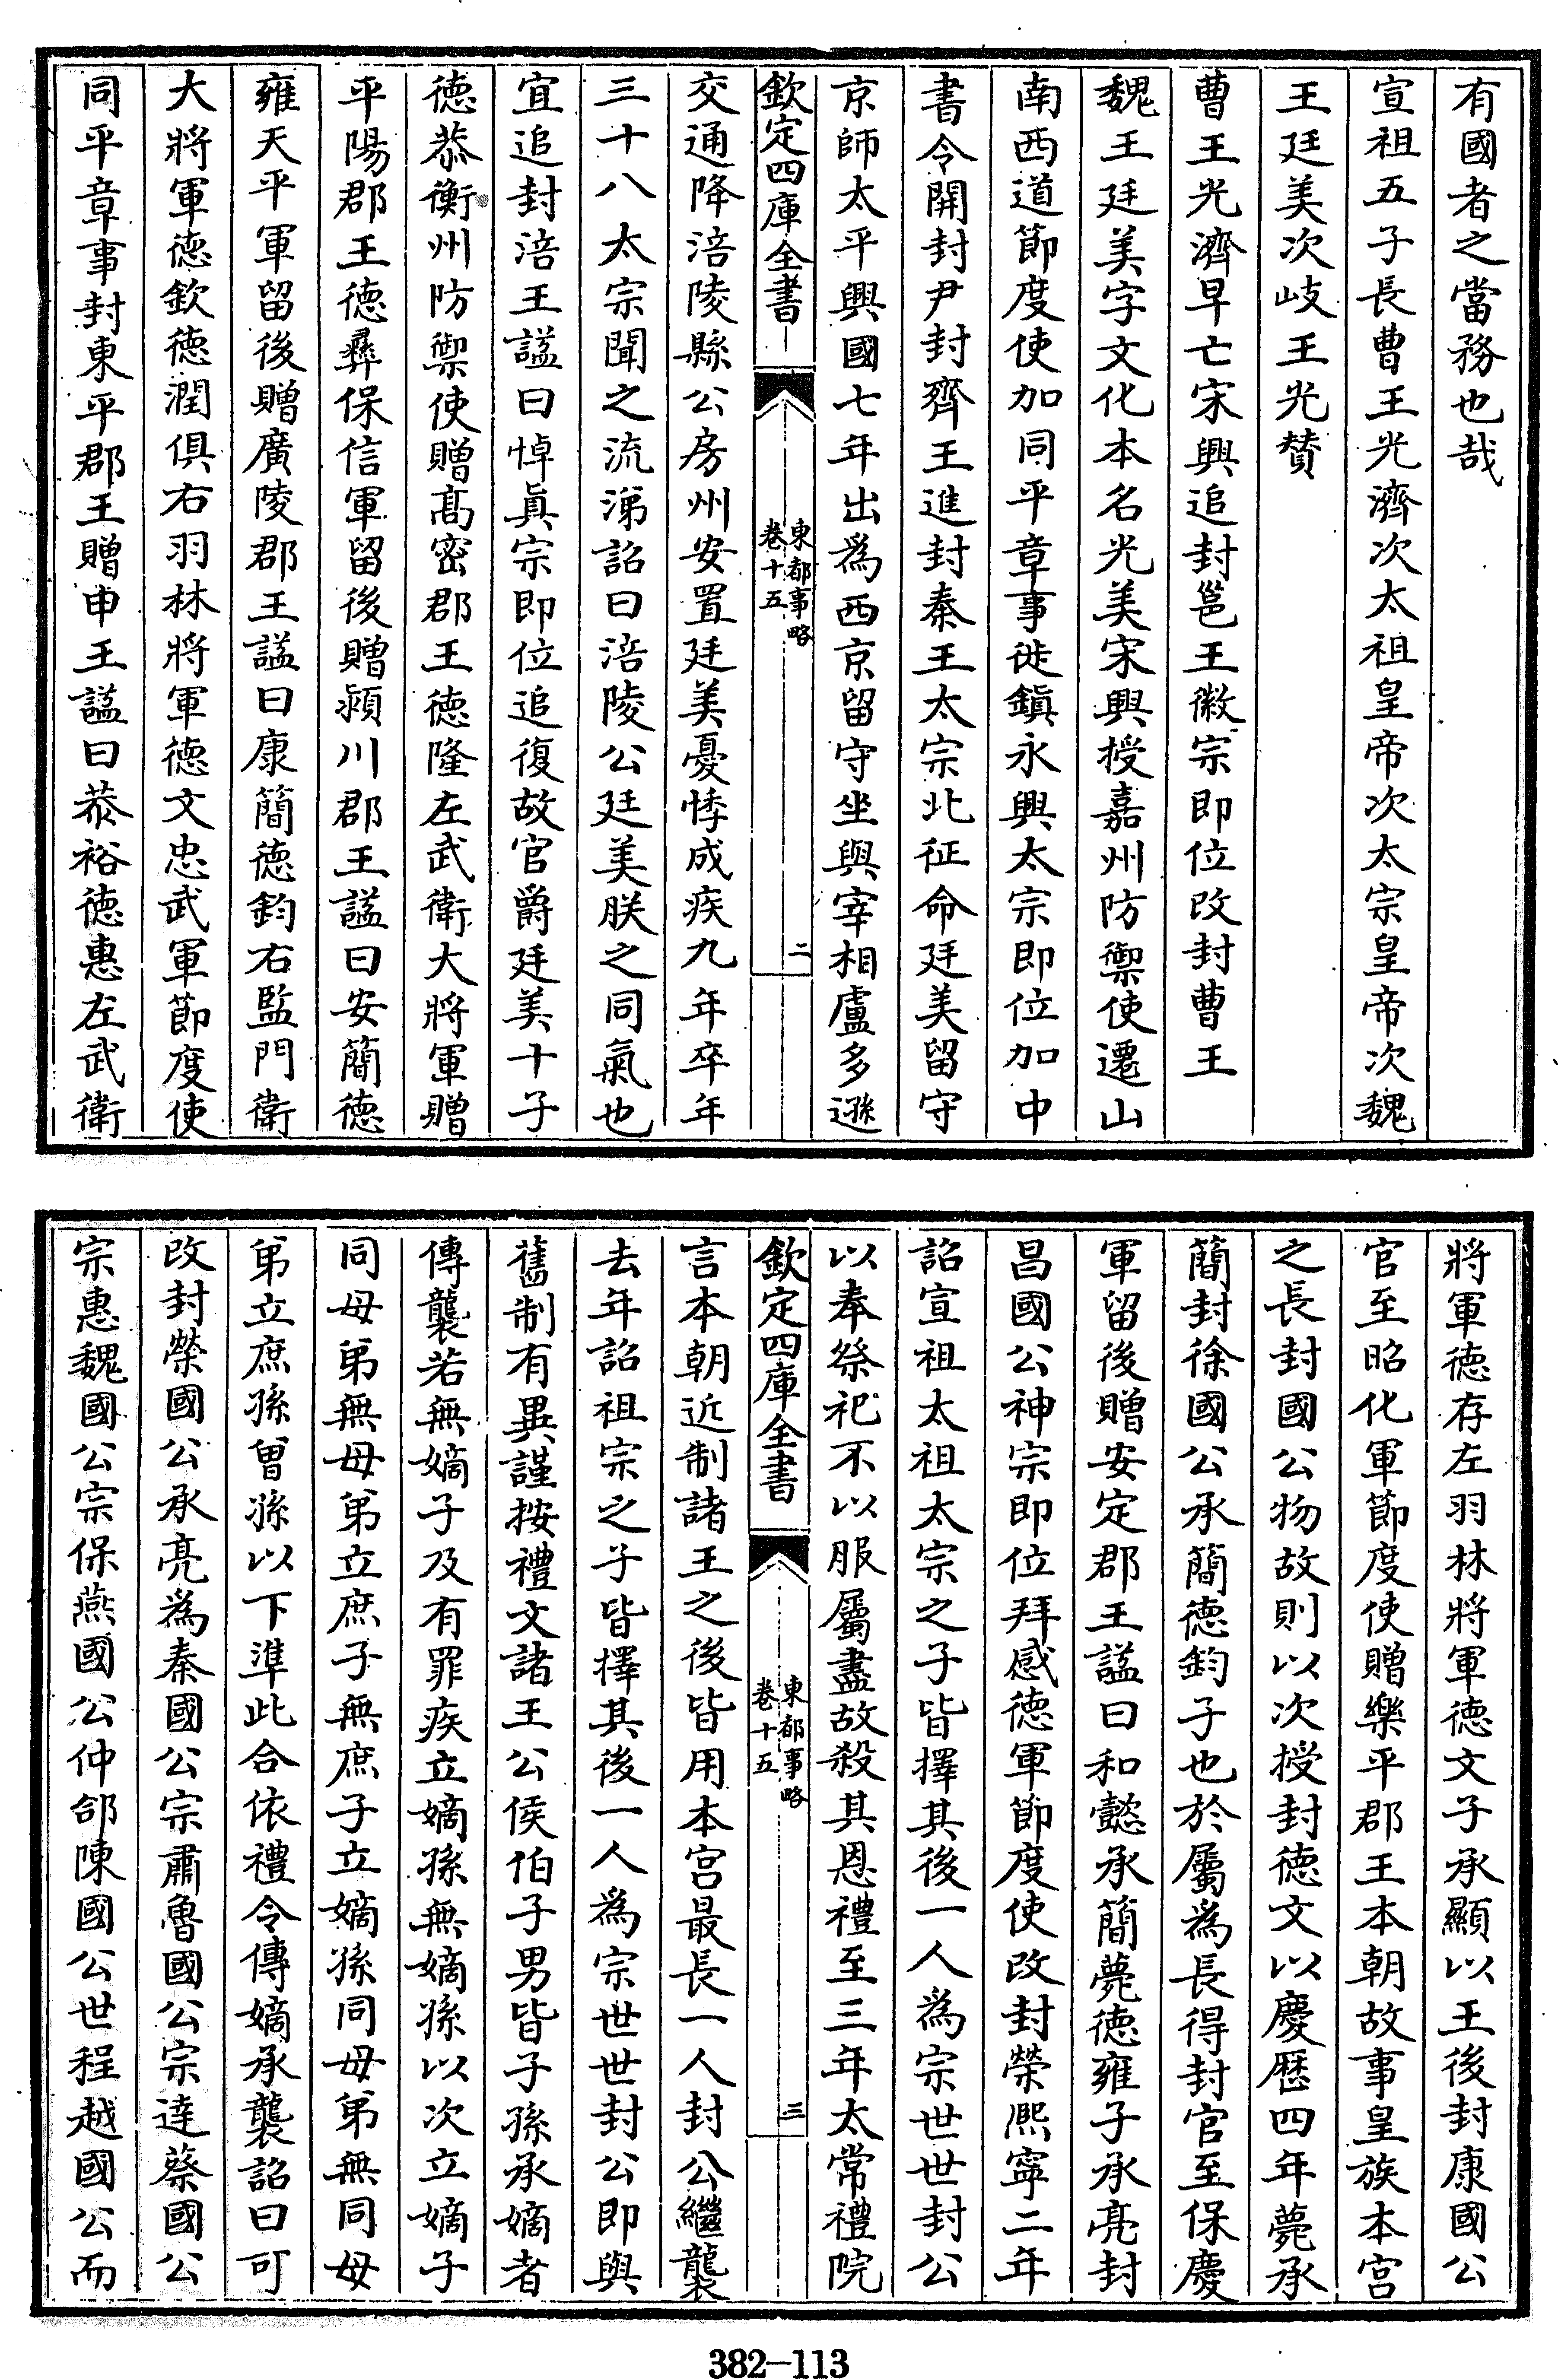 有國者之當務也哉
宣祖五子長曹王光濟次太祖皇帝次太宗皇帝次魏
王廷美次岐王光賛
曹王光濟早亡宋興追封邕王徽宗即位改封曹王
魏王廷美字文化本名光美宋興授嘉州防禦使遷山
南西道節度使加同平章事徙鎮永興太宗即位加中
書令開封尹封齊王進封秦王太宗北征命廷美留守
京師太平興國七年出為西京留守坐與宰相盧多遜
欽定四庫全書
東都事略
卷十五
二
交通降涪陵縣公房州安置廷美憂悸成疾九年卒年
三十八太宗聞之流涕詔曰涪陵公廷美朕之同氣也
宜追封涪王謚曰悼真宗即位追復故官爵廷美十子
德恭衡州防禦使贈髙密郡王德隆左武衛大將軍贈
平陽郡王德彞保信軍留後贈潁川郡王謚曰安簡德
雍天平軍留後贈廣陵郡王謚曰康簡德鈞右監門衛
大將軍德欽德潤俱右羽林將軍德文忠武軍節度使
同平章事封東平郡王贈申王謚曰恭裕德惠左武衛
將軍德存左羽林將軍德文子承顯以王後封康國公
官至昭化軍節度使贈樂平郡王本朝故事皇族本宮
之長封國公物故則以次授封德文以慶歷四年薨承
簡封徐國公承簡德鈞子也於屬為長得封官至保慶
軍留後贈安定郡王謚曰和懿承簡薨德雍子承亮封
昌國公神宗即位拜感德軍節度使改封榮熙寧二年
詔宣祖太祖太宗之子皆擇其後一人為宗世世封公
以奉祭祀不以服屬盡故殺其恩禮至三年太常禮院
欽定四庫全書
東都事略
卷十五
三
言本朝近制諸王之後皆用本宮最長一人封公繼襲
去年詔祖宗之子皆擇其後一人為宗世世封公即與
舊制有異謹按禮文諸王公侯伯子男皆子孫承嫡者
傳襲若無嫡子及有罪疾立嫡孫無嫡孫以次立嫡子
同母弟無母弟立庶子無庶子立嫡孫同母弟無同母
弟立庶孫曾孫以下準此合依禮令傳嫡承襲詔曰可
改封榮國公承亮為秦國公宗肅魯國公宗達蔡國公
宗惠魏國公宗保燕國公仲郃陳國公世程越國公而
382-113